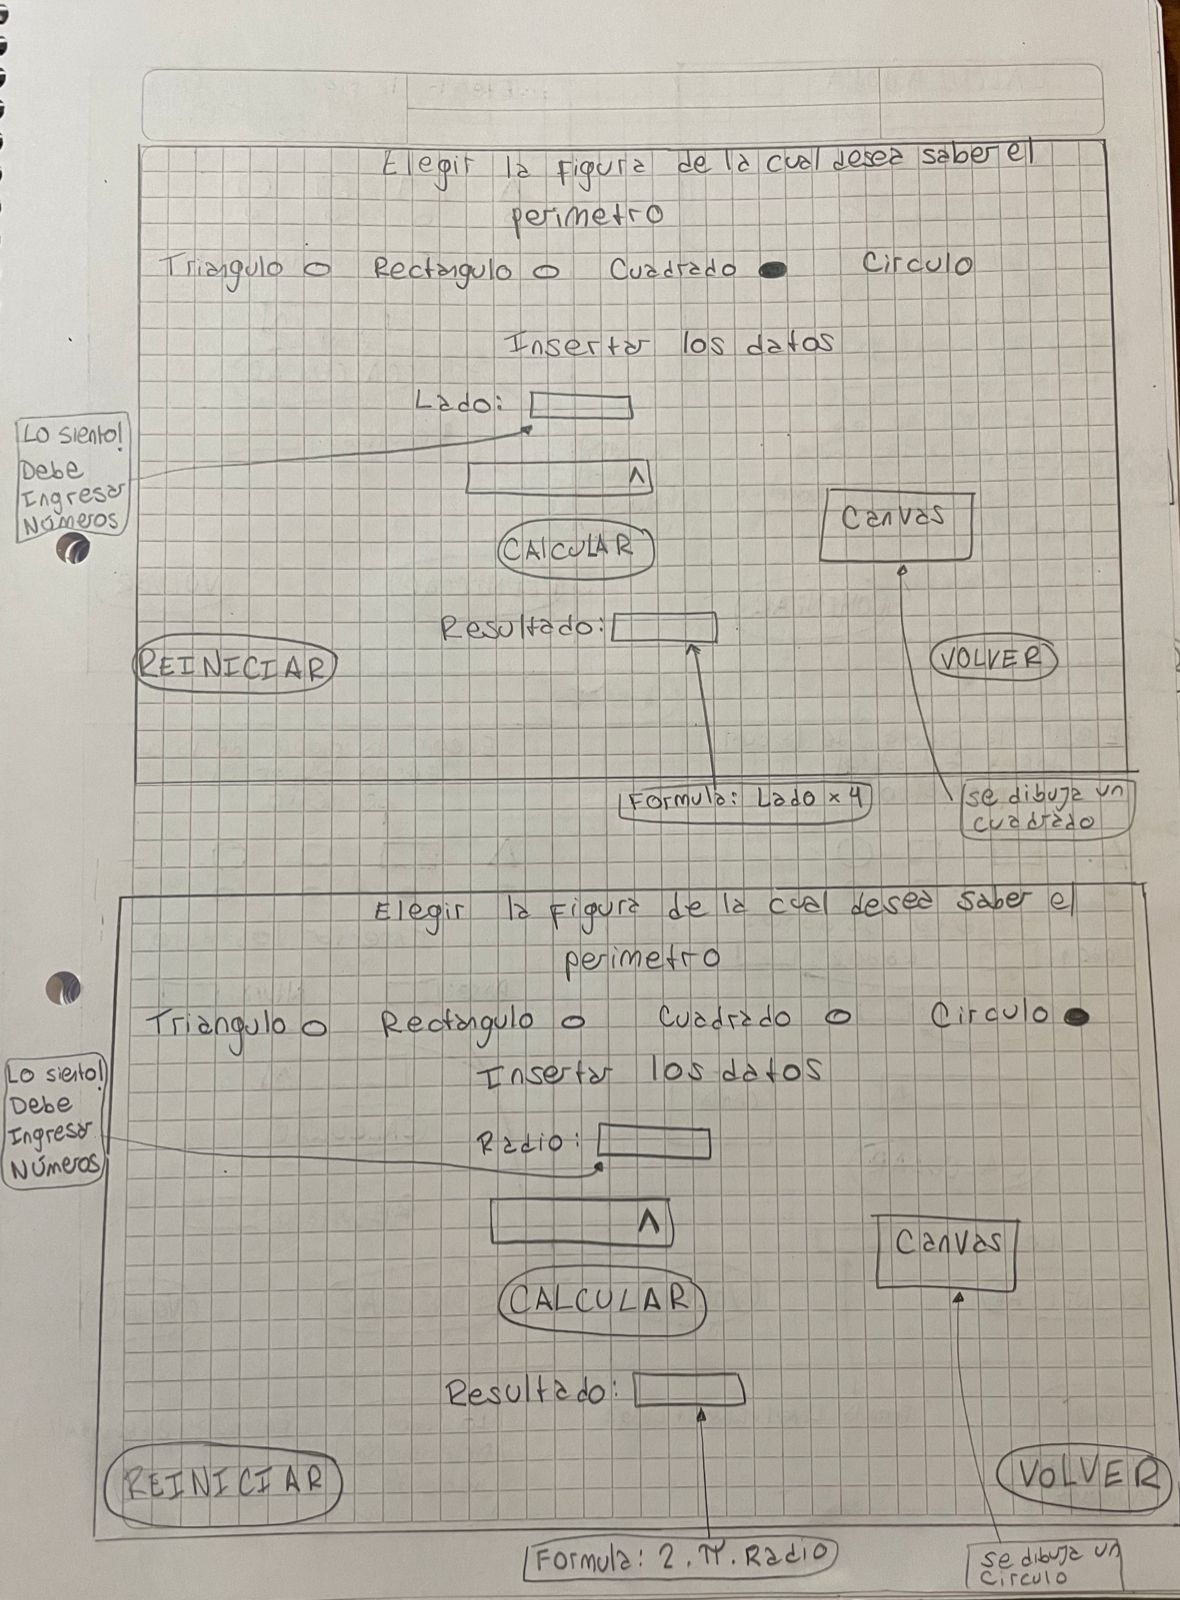 Elegir la Figura de la cual desea saber el
perimetro
Triangulo Rectangulo Cuadrado Circulo
Insertar los datos
Lado:
Lo siento!
Debe
Ingresar
Números
Λ
CALCULAR
Canvas
Resultado:
REINICIAR
VOLVER
Formula: Lado x 4
se dibuja un
cuadrado
Elegir la Figura de la cual desea saber el
perimetro
Triangulo Rectangulo Cuadrado Circulo
Insertar los datos
Lo siento!
Debe
Ingresar
Números
Radio:
Λ
CALCULAR
Canvas
Resultado:
REINICIAR
VOLVER
Formula: 2.π.Radio
se dibuja un
Circulo